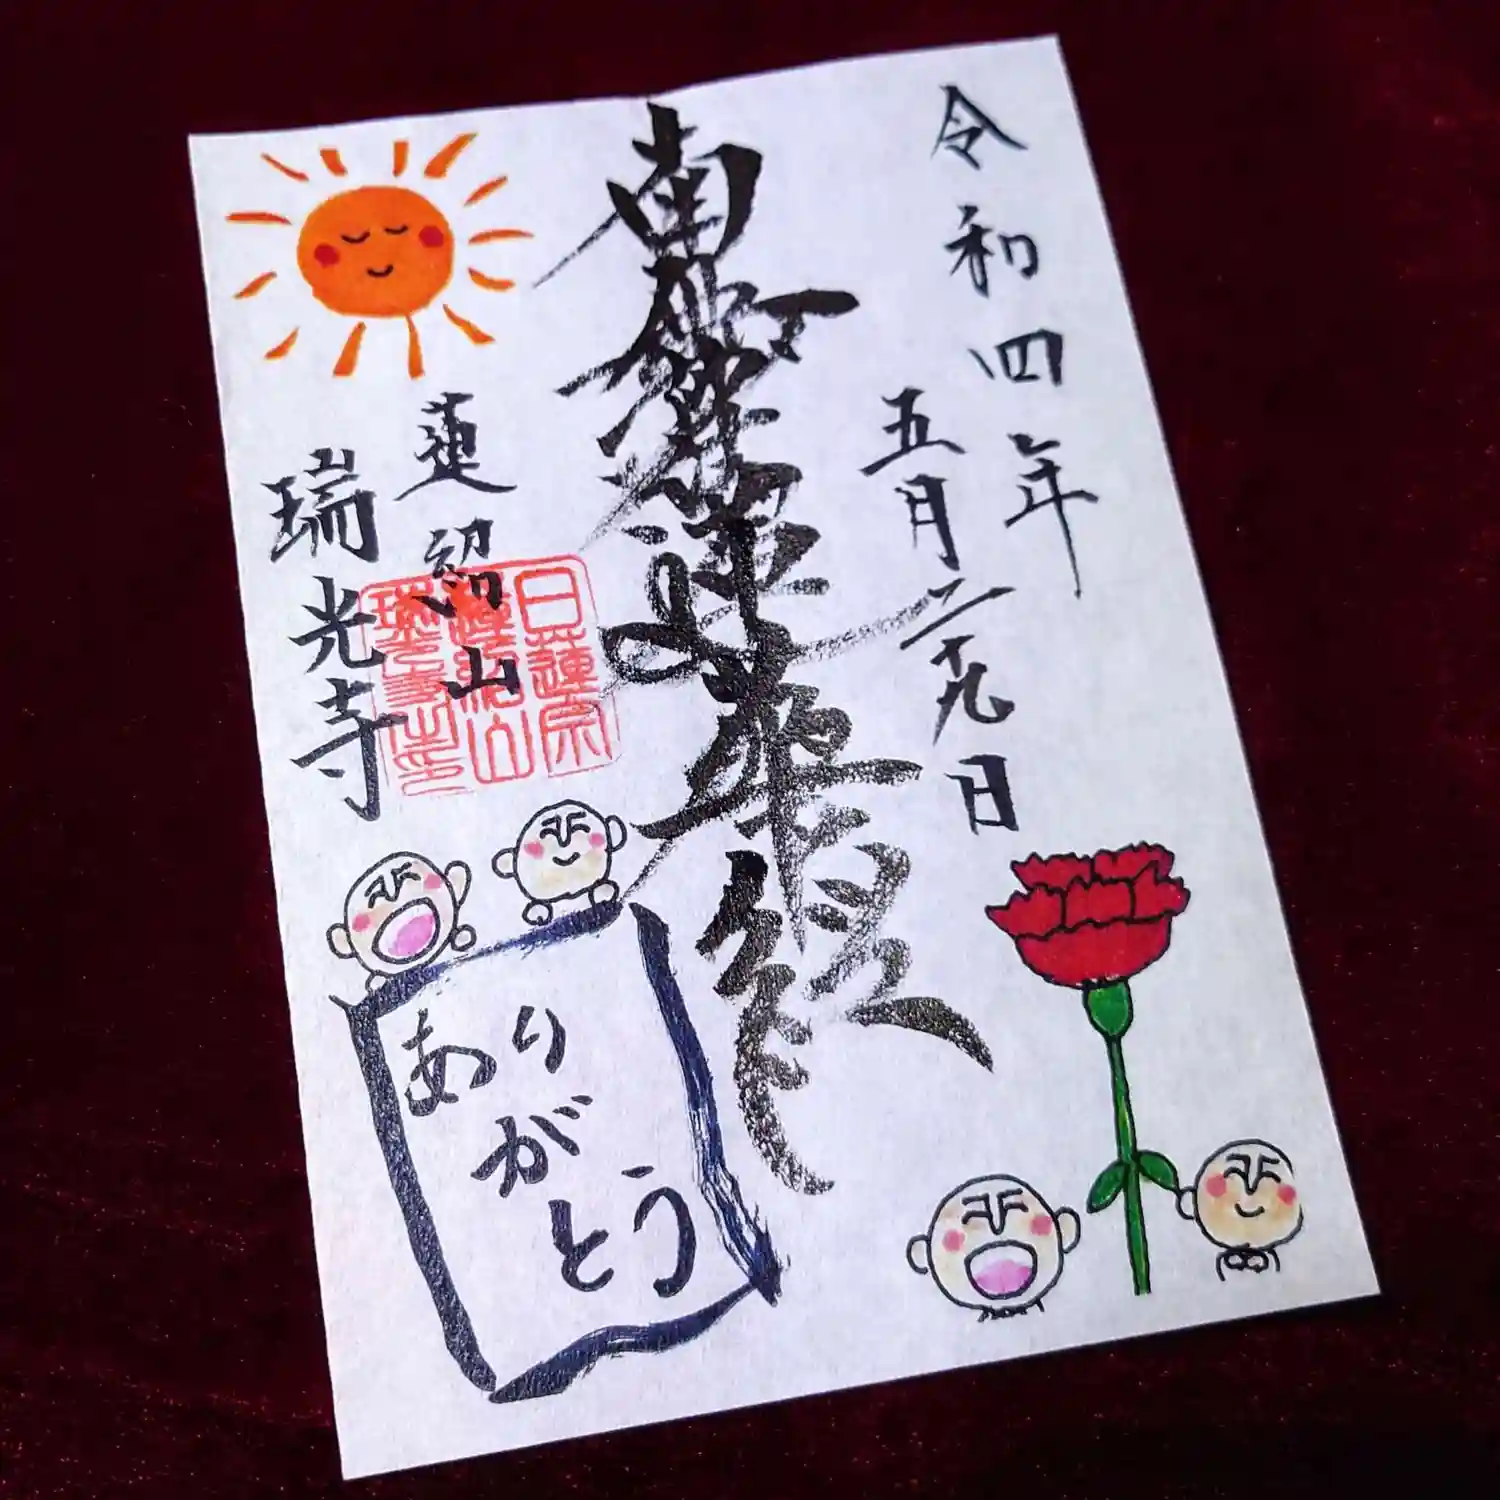 令和四年
五月二十九日
南無妙法蓮華経
蓮紹山
瑞光寺
日蓮宗
蓮紹山
瑞光寺之印
ありがとう